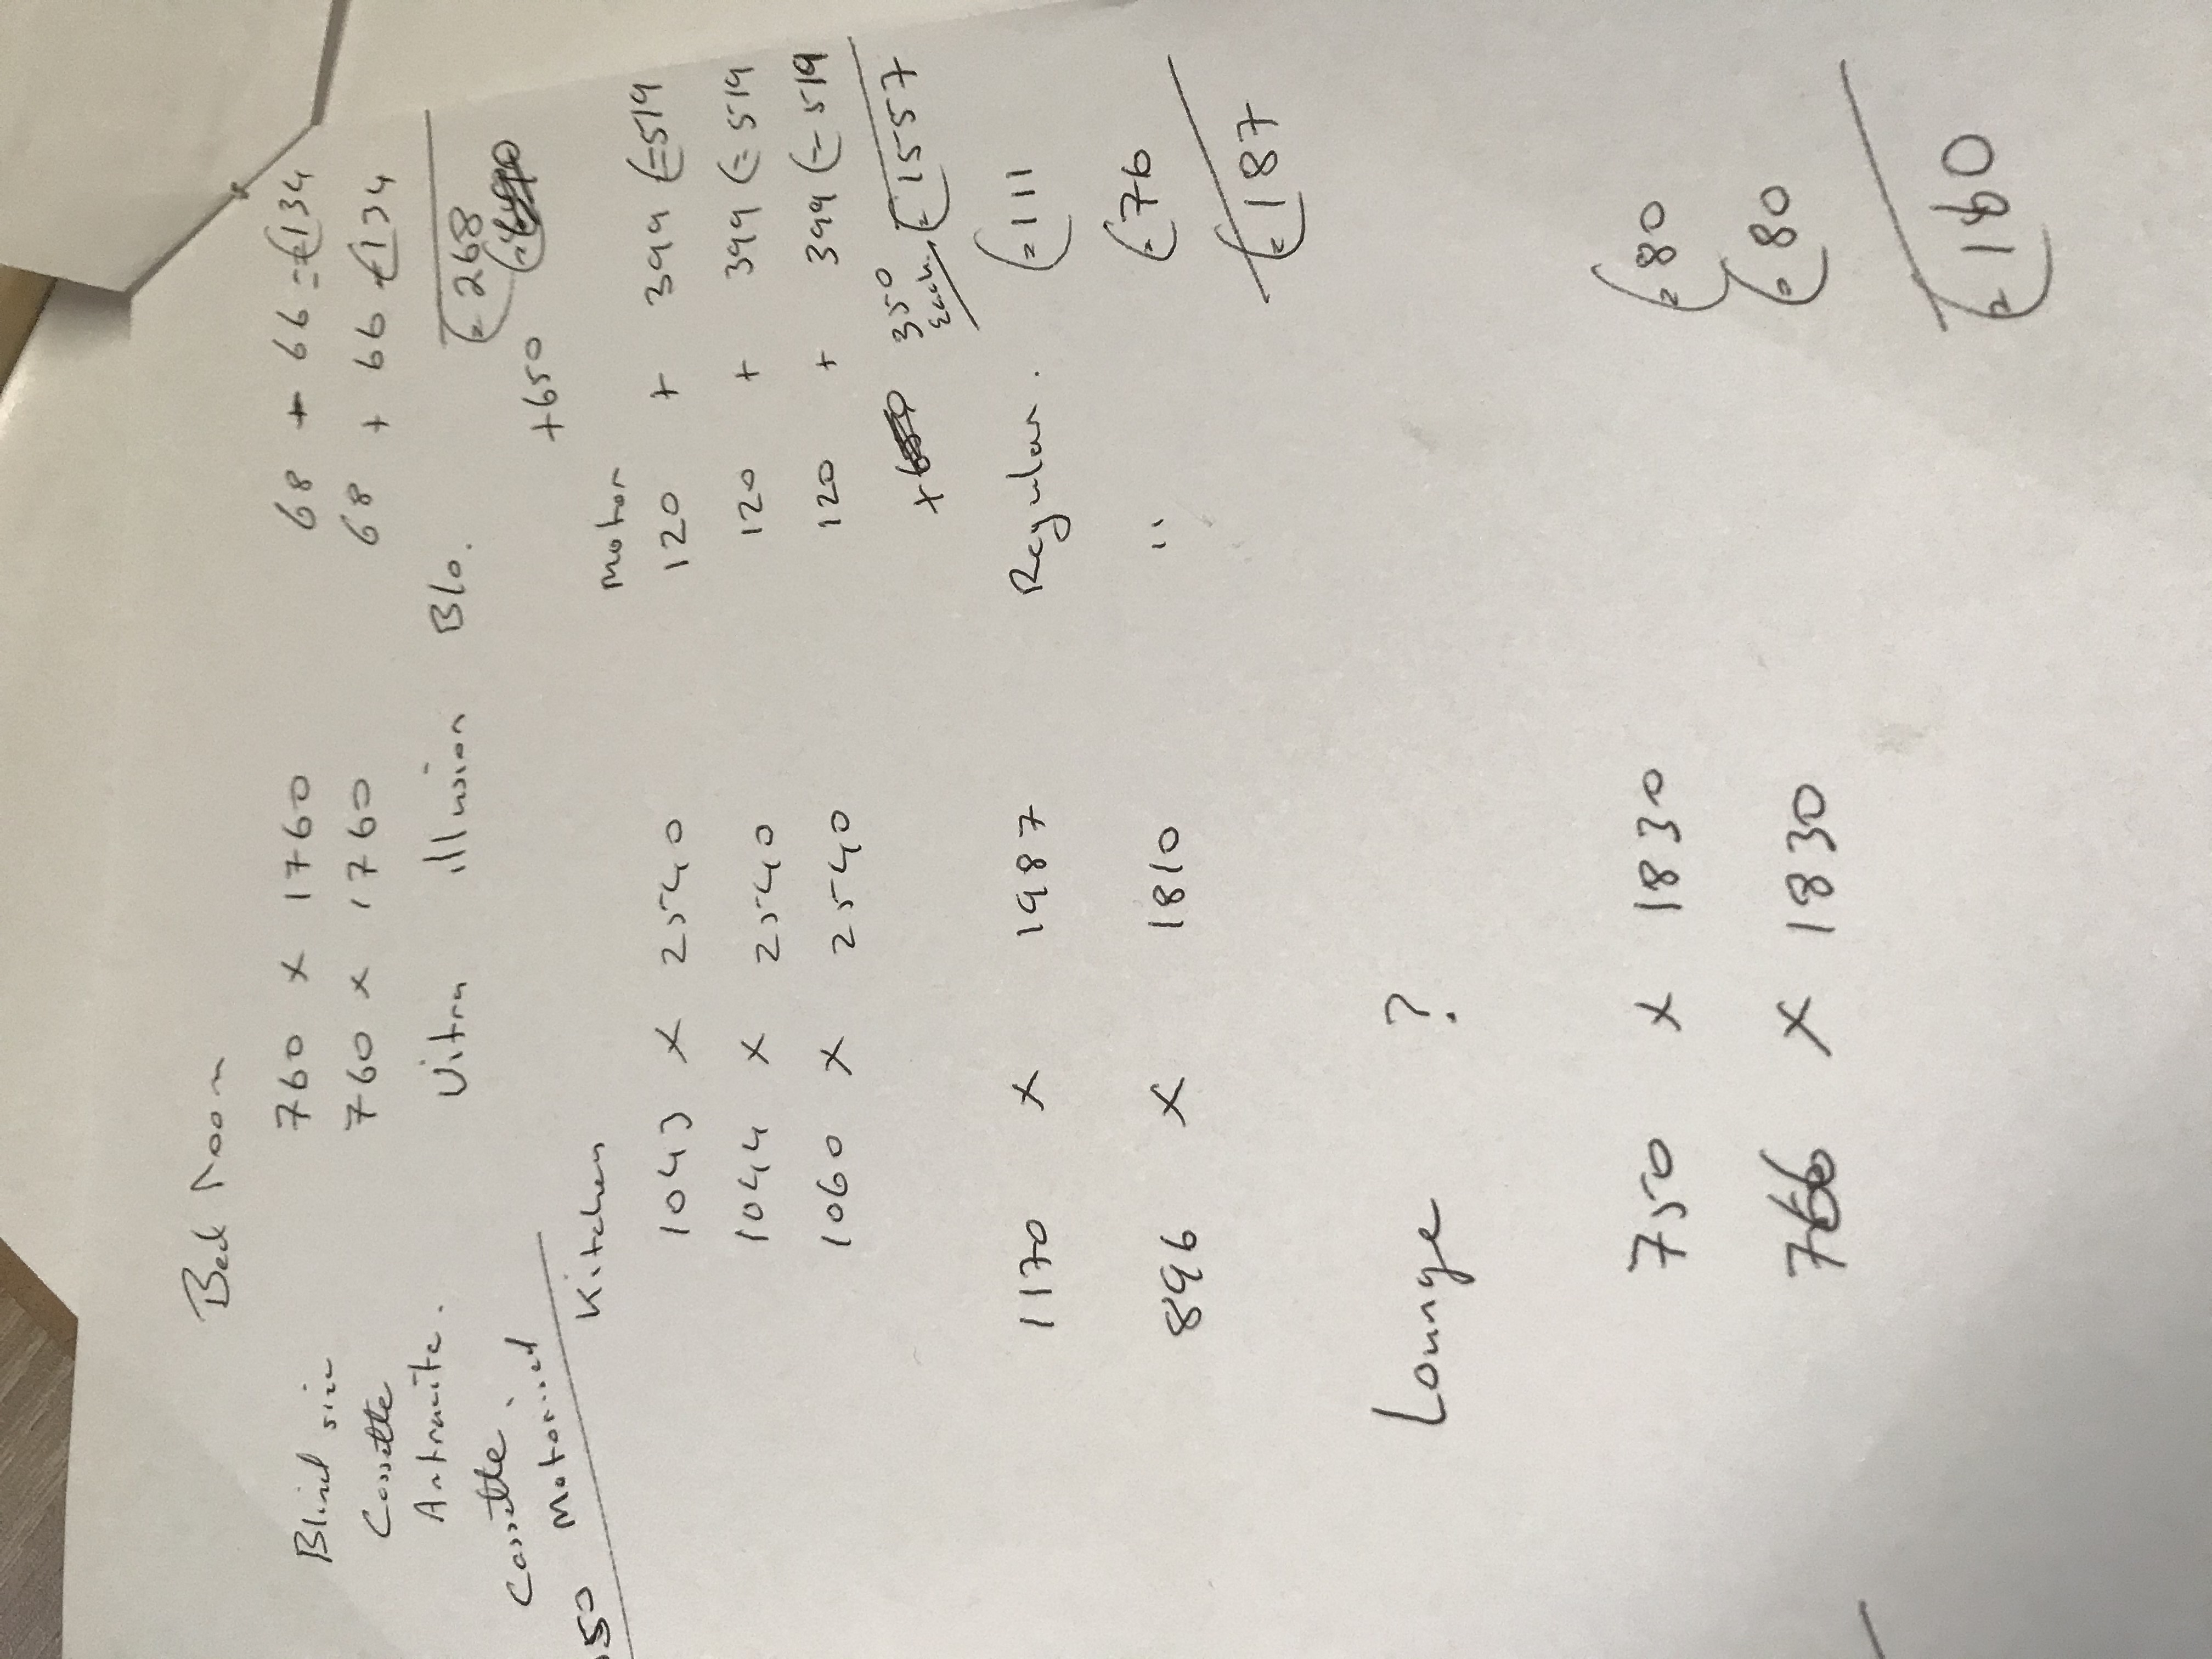 Bed room
Blind size 760 x 1760 68 + 66 = €134
Cassette 760 x 1760 68 + 66 €134
Antracite. Vitra illusion Blo. €268
Cassette. +650
Motorized
50 Kitchen Motor
1043 x 2540 120 + 399 €519
1044 x 2540 120 + 399 € 519
1060 x 2540 120 + 399 € 519
+ 350 each €1557
1170 x 1987 Regular. €111
896 x 1810 " €76
€187
Lounge ?
750 x 1830 €80
766 x 1830 €80
€160